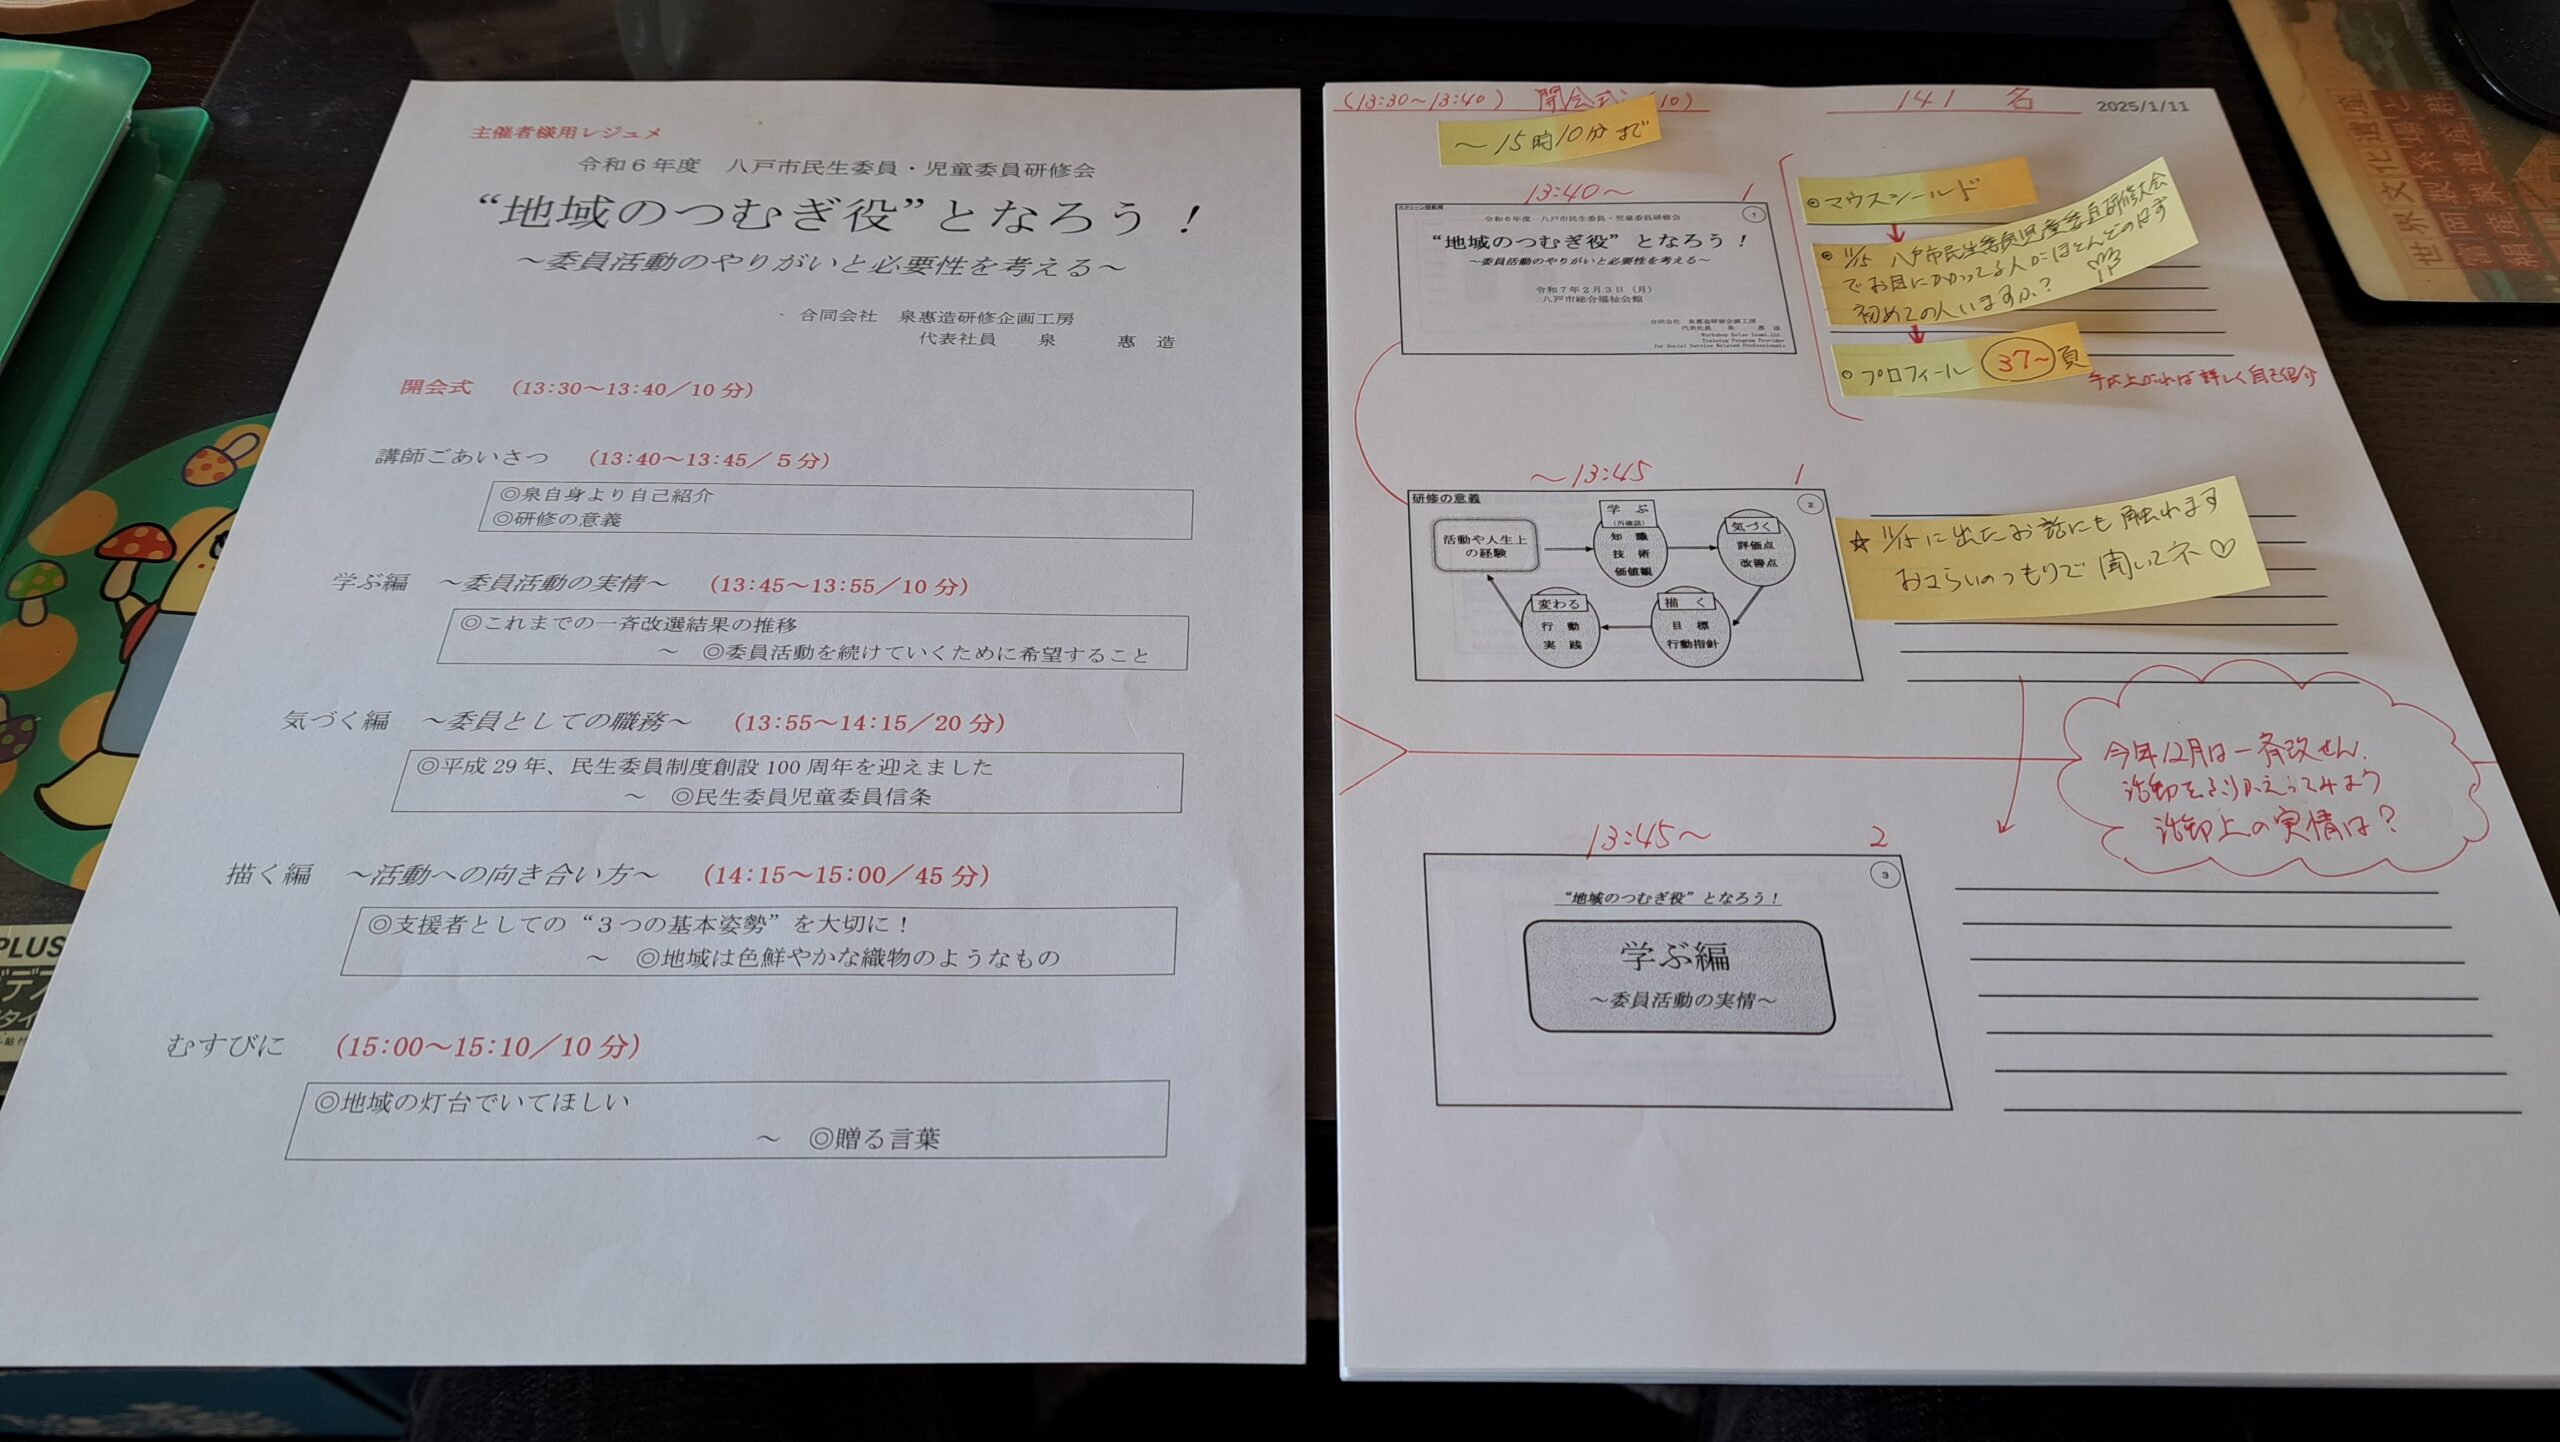 主催者様用レジュメ
令和６年度　八戸市民生委員・児童委員研修会
“地域のつむぎ役”となろう！
～委員活動のやりがいと必要性を考える～
合同会社　泉惠造研修企画工房
代表社員　泉　惠　造
開会式　（13:30～13:40／10分）
講師ごあいさつ　（13:40～13:45／５分）
◎泉自身より自己紹介
◎研修の意義
学ぶ編　～委員活動の実情～　（13:45～13:55／10分）
◎これまでの一斉改選結果の推移
～　◎委員活動を続けていくために希望すること
気づく編　～委員としての職務～　（13:55～14:15／20分）
◎平成29年、民生委員制度創設100周年を迎えました
～　◎民生委員児童委員信条
描く編　～活動への向き合い方～　（14:15～15:00／45分）
◎支援者としての“３つの基本姿勢”を大切に！
～　◎地域は色鮮やかな織物のようなもの
むすびに　（15:00～15:10／10分）
◎地域の灯台でいてほしい
～　◎贈る言葉
(13:30～13:40)　開会式　10)　141　名　2025/1/11
～15時10分まで
13:40～　1
スクリーン投影用
①
令和６年度　八戸市民生委員・児童委員研修会
“地域のつむぎ役”となろう！
～委員活動のやりがいと必要性を考える～
令和７年２月３日（月）
八戸市総合福祉会館
合同会社　泉惠造研修企画工房
代表社員　泉　惠　造
Workshop Keizo Izumi,LLC
Training Program Provider
for Social Service Related Professionals
◎マウスシールド
◎11/15 八戸市民生委員児童委員研修大会
でお目にかかってる人がほとんどのはず
初めての人いますか？
○プロフィール 37～頁
手が上がれば詳しく自己紹介
～13:45　1
研修の意義　②
活動や人生上
の経験
学　ぶ
（再確認）
知　識
技　術
価値観
気づく
評価点
改善点
変わる
行　動
実　践
描　く
目　標
行動指針
☆11/15に出たお話にも触れます
おさらいのつもりで聞いてネ♡
今年12月は一斉改せん.
活動をふりかえってみよう
活動上の実情は？
13:45～　2
③
“地域のつむぎ役”となろう！
学ぶ編
～委員活動の実情～
世界文化遺産
富岡製糸場と
絹産業遺産群
PLUS